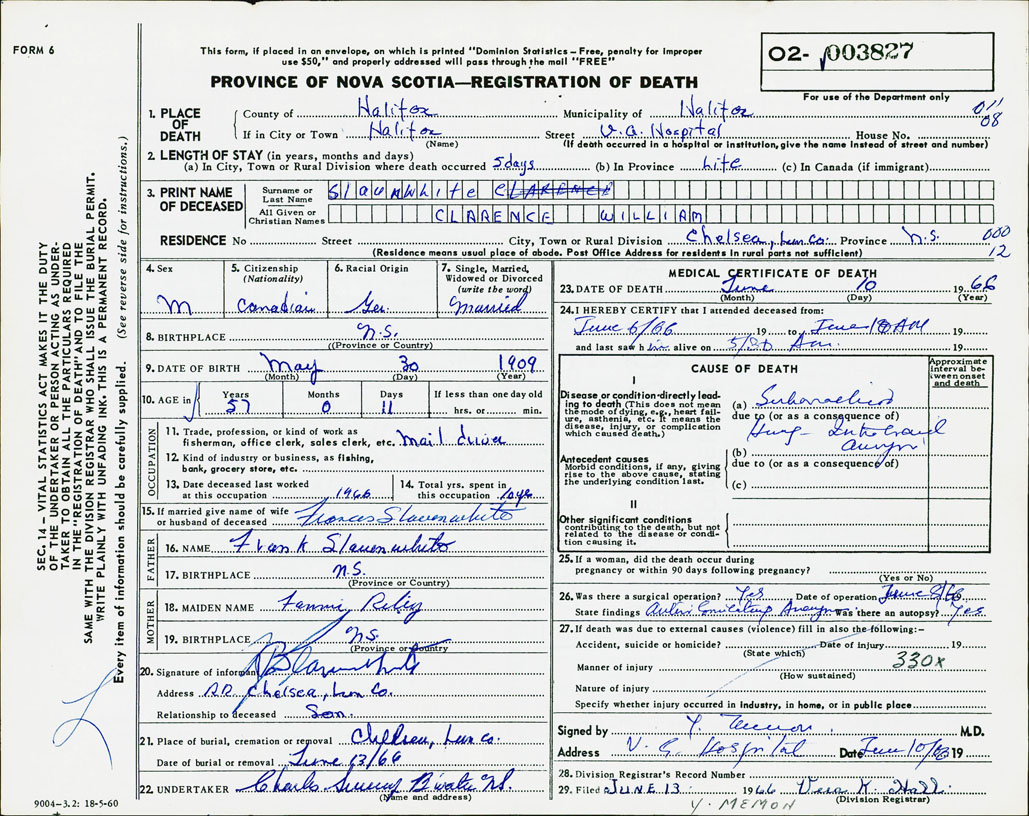 FORM 6
This form, if placed in an envelope, on which is printed "Dominion Statistics – Free, penalty for improper
use $50," and properly addressed will pass through the mail "FREE"
02- 003827
For use of the Department only
PROVINCE OF NOVA SCOTIA—REGISTRATION OF DEATH
1. PLACE OF DEATH County of Halifax Municipality of Halifax 011
If in City or Town Halifax Street V.G. Hospital House No. 08
(Name) (If death occurred in a hospital or institution, give the name instead of street and number)
2. LENGTH OF STAY (in years, months and days)
(a) In City, Town or Rural Division where death occurred 5 days (b) In Province Life (c) In Canada (if immigrant)
3. PRINT NAME OF DECEASED Surname or Last Name SlauNWhite CLARENCE
All Given or Christian Names CLARENCE WILLIAM
RESIDENCE No Street City, Town or Rural Division Chelsea, Lun Co. Province N.S. 000
(Residence means usual place of abode. Post Office Address for residents in rural parts not sufficient) 12
4. Sex M
5. Citizenship (Nationality) Canadian
6. Racial Origin Ger.
7. Single, Married, Widowed or Divorced (write the word) Married
8. BIRTHPLACE N.S.
((Province or Country)
9. DATE OF BIRTH May 30 1909
(Month) (Day) (Year)
10. AGE in Years 57 Months 0 Days 11 If less than one day old
hrs. or min.
OCCUPATION
11. Trade, profession, or kind of work as
fisherman, office clerk, sales clerk, etc. Mail driver
12. Kind of industry or business, as fishing,
bank, grocery store, etc.
13. Date deceased last worked at this occupation 1966
14. Total yrs. spent in this occupation 10 yrs
15. If married give name of wife
or husband of deceased Frances Slauenwhite
FATHER
16. NAME Frank Slauenwhite
17. BIRTHPLACE N.S.
(Province or Country)
MOTHER
18. MAIDEN NAME Fannie Riley
19. BIRTHPLACE N.S.
(Province or Country
20. Signature of informant
Address RR Chelsea, Lun Co.
Relationship to deceased Son
21. Place of burial, cremation or removal Chelsea, Lun Co.
Date of burial or removal June 13/66
22. UNDERTAKER Charles N.S.
(Name and address)
9004-3.2: 18-5-60
MEDICAL CERTIFICATE OF DEATH
23. DATE OF DEATH June 10 1966
(Month) (Day) (Year)
24. I HEREBY CERTIFY that I attended deceased from:
June 6/66 19 to June 19
and last saw h im alive on 19
CAUSE OF DEATH
Approximate interval between onset and death
I
Disease or condition directly leading to death (This does not mean the mode of dying, e.g., heart failure, asthenia, etc. It means the disease, injury, or complication which caused death.)
(a) Subarachnoid
due to (or as a consequence of)
Antecedent causes
Morbid conditions, if any, giving rise to the above cause, stating the underlying condition last.
(b)
due to (or as a consequence of)
(c)
II
Other significant conditions
contributing to the death, but not related to the disease or condition causing it.
25. If a woman, did the death occur during
pregnancy or within 90 days following pregnancy?
(Yes or No)
26. Was there a surgical operation? Yes Date of operation June 8/66
State findings Was there an autopsy? Yes
27. If death was due to external causes (violence) fill in also the following:–
Accident, suicide or homicide? Date of injury 19
(State which)
Manner of injury 330x
(How sustained)
Nature of injury
Specify whether injury occurred in industry, in home, or in public place
Signed by Y. Memon M.D.
Address V. G. Hospital Date June 10/66 19
28. Division Registrar's Record Number
29. Filed JUNE 13 1966 Vera K. Hall
(Division Registrar)
Y. MEMON
SEC. 14 – VITAL STATISTICS ACT MAKES IT THE DUTY
OF THE UNDERTAKER OR PERSON ACTING AS UNDER-
TAKER TO OBTAIN ALL THE PARTICULARS REQUIRED
IN THE "REGISTRATION OF DEATH" AND TO FILE THE
SAME WITH THE DIVISION REGISTRAR WHO SHALL ISSUE THE BURIAL PERMIT.
WRITE PLAINLY WITH UNFADING INK. THIS IS A PERMANENT RECORD.
Every item of information should be carefully supplied. (See reverse side for instructions.)